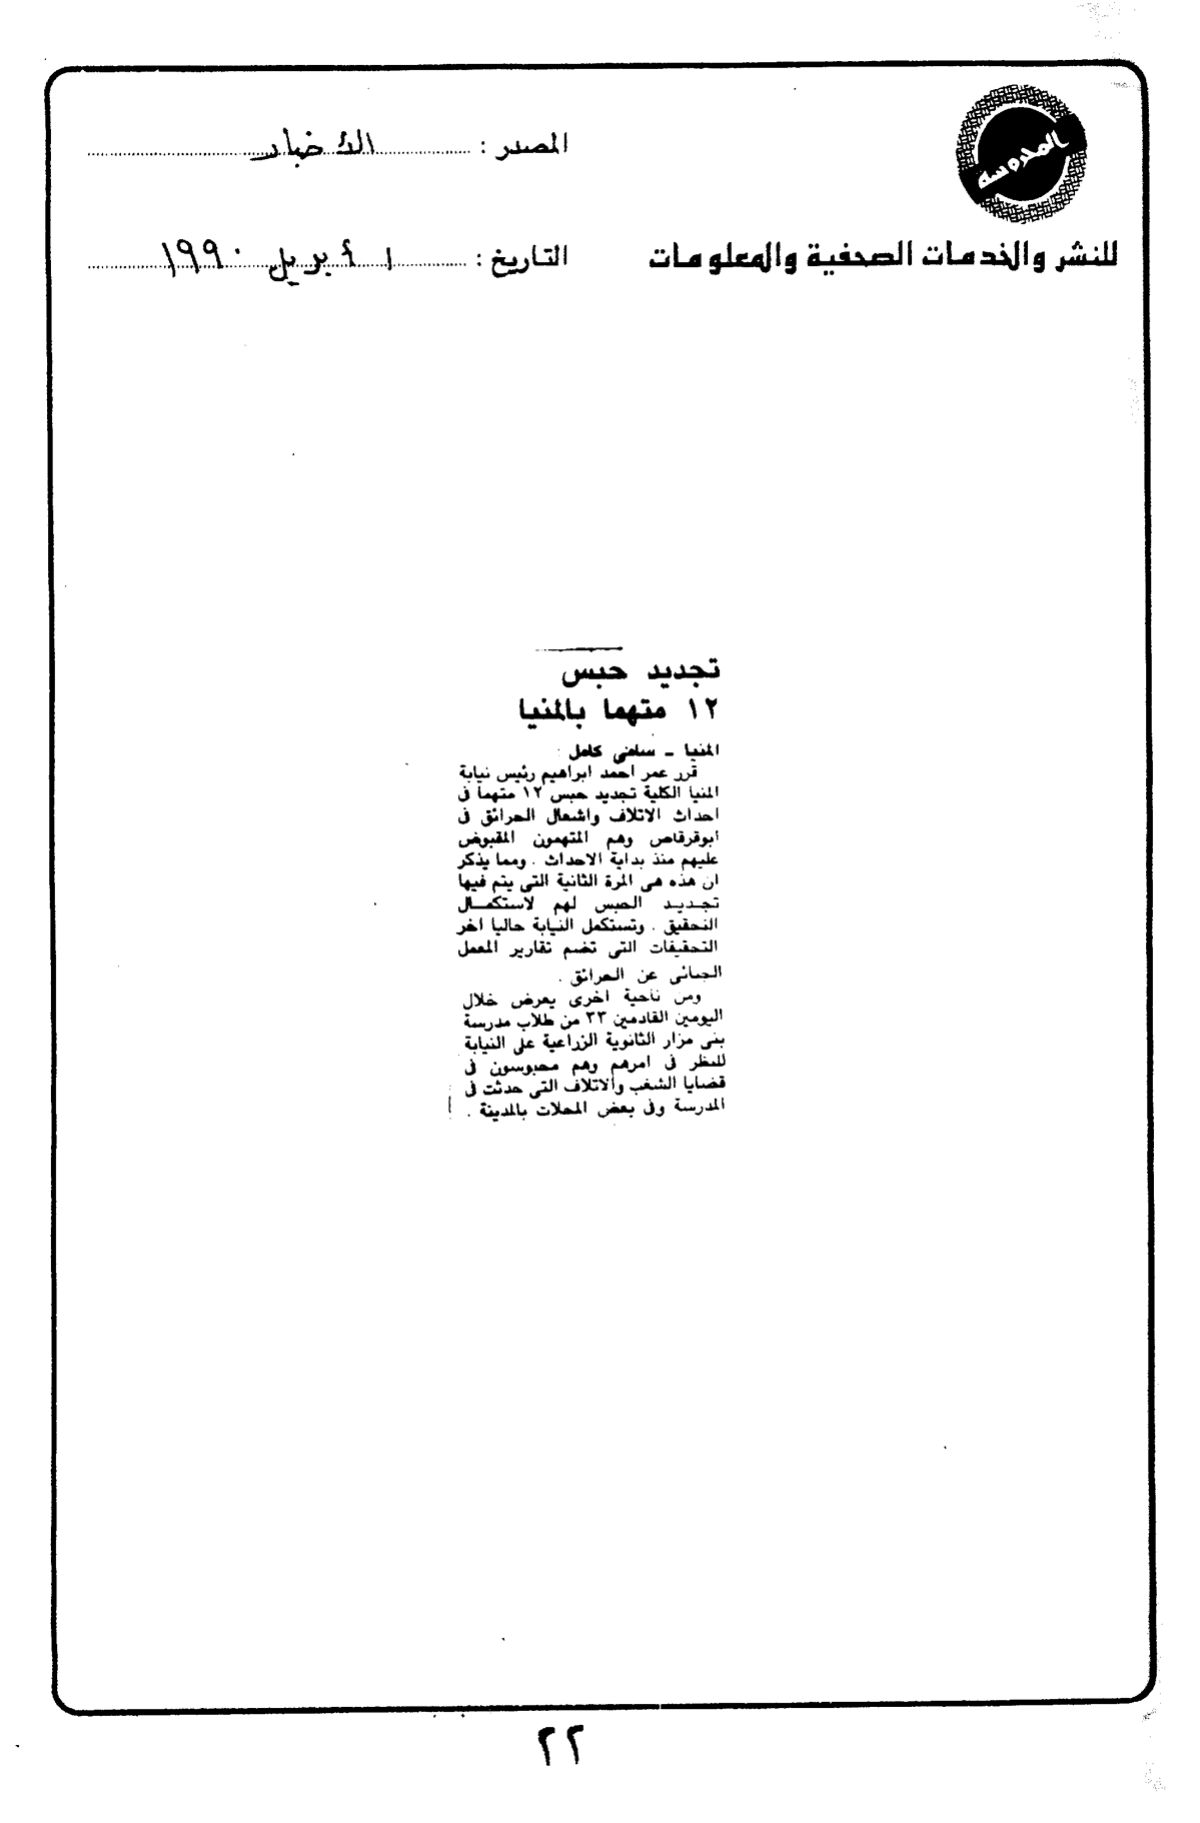 المحروسة
للنشر والخدمات الصحفية والمعلومات
المصدر : الأخبار
التاريخ : ١ أبريل ١٩٩٠
تجديد حبس
١٢ متهما بالمنيا
المنيا ـ سامى كامل :
قرر عمر احمد ابراهيم رئيس نيابة
المنيا الكلية تجديد حبس ١٢ متهما فى
احداث الاتلاف واشعال الحرائق فى
ابوقرقاص وهم المتهمون المقبوض
عليهم منذ بداية الاحداث . ومما يذكر
ان هذه هى المرة الثانية التى يتم فيها
تجديد الحبس لهم لاستكمال
التحقيق . وتستكمل النيابة حاليا اخر
التحقيقات التى تضم تقارير المعمل
الجنائى عن الحرائق .
ومن ناحية اخرى يعرض خلال
اليومين القادمين ٣٣ من طلاب مدرسة
بنى مزار الثانوية الزراعية على النيابة
للنظر فى امرهم وهم محبوسون فى
قضايا الشغب والاتلاف التى حدثت فى
المدرسة وفى بعض المحلات بالمدينة .
٢٢